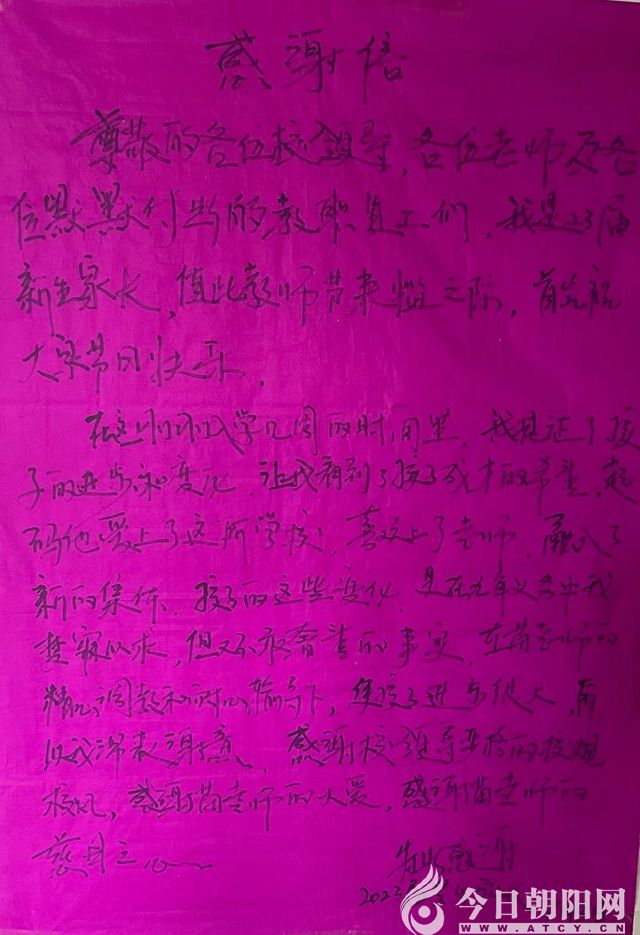 感谢信
尊敬的各位校领导,各位老师及各
位默默付出的教职员工们,我是23届
新生家长,值此教师节来临之际,首先祝
大家节日快乐,
在这刚刚入学几周的时间里,我见证了孩
子的进步和变化,让我看到了孩子成才的希望,起
码他爱上了这所学校,喜欢上了老师,融入了
新的集体,孩子的这些变化,是在九年义务中我
梦寐以求,但又不敢奢望的事实,在苗老师的
精心调教和耐心辅导下,使孩子进步很大,所
以我深表谢意,感谢校领导严格的校规
校风,感谢苗老师的大爱,感谢苗老师的
慈母之心
感谢
2023
今日朝阳网
WWW.ATCY.CN